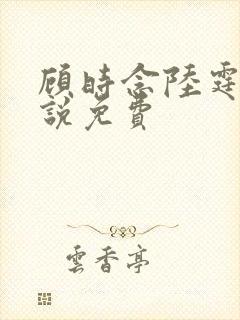 顾時念陸霆
説免費
雲香亭